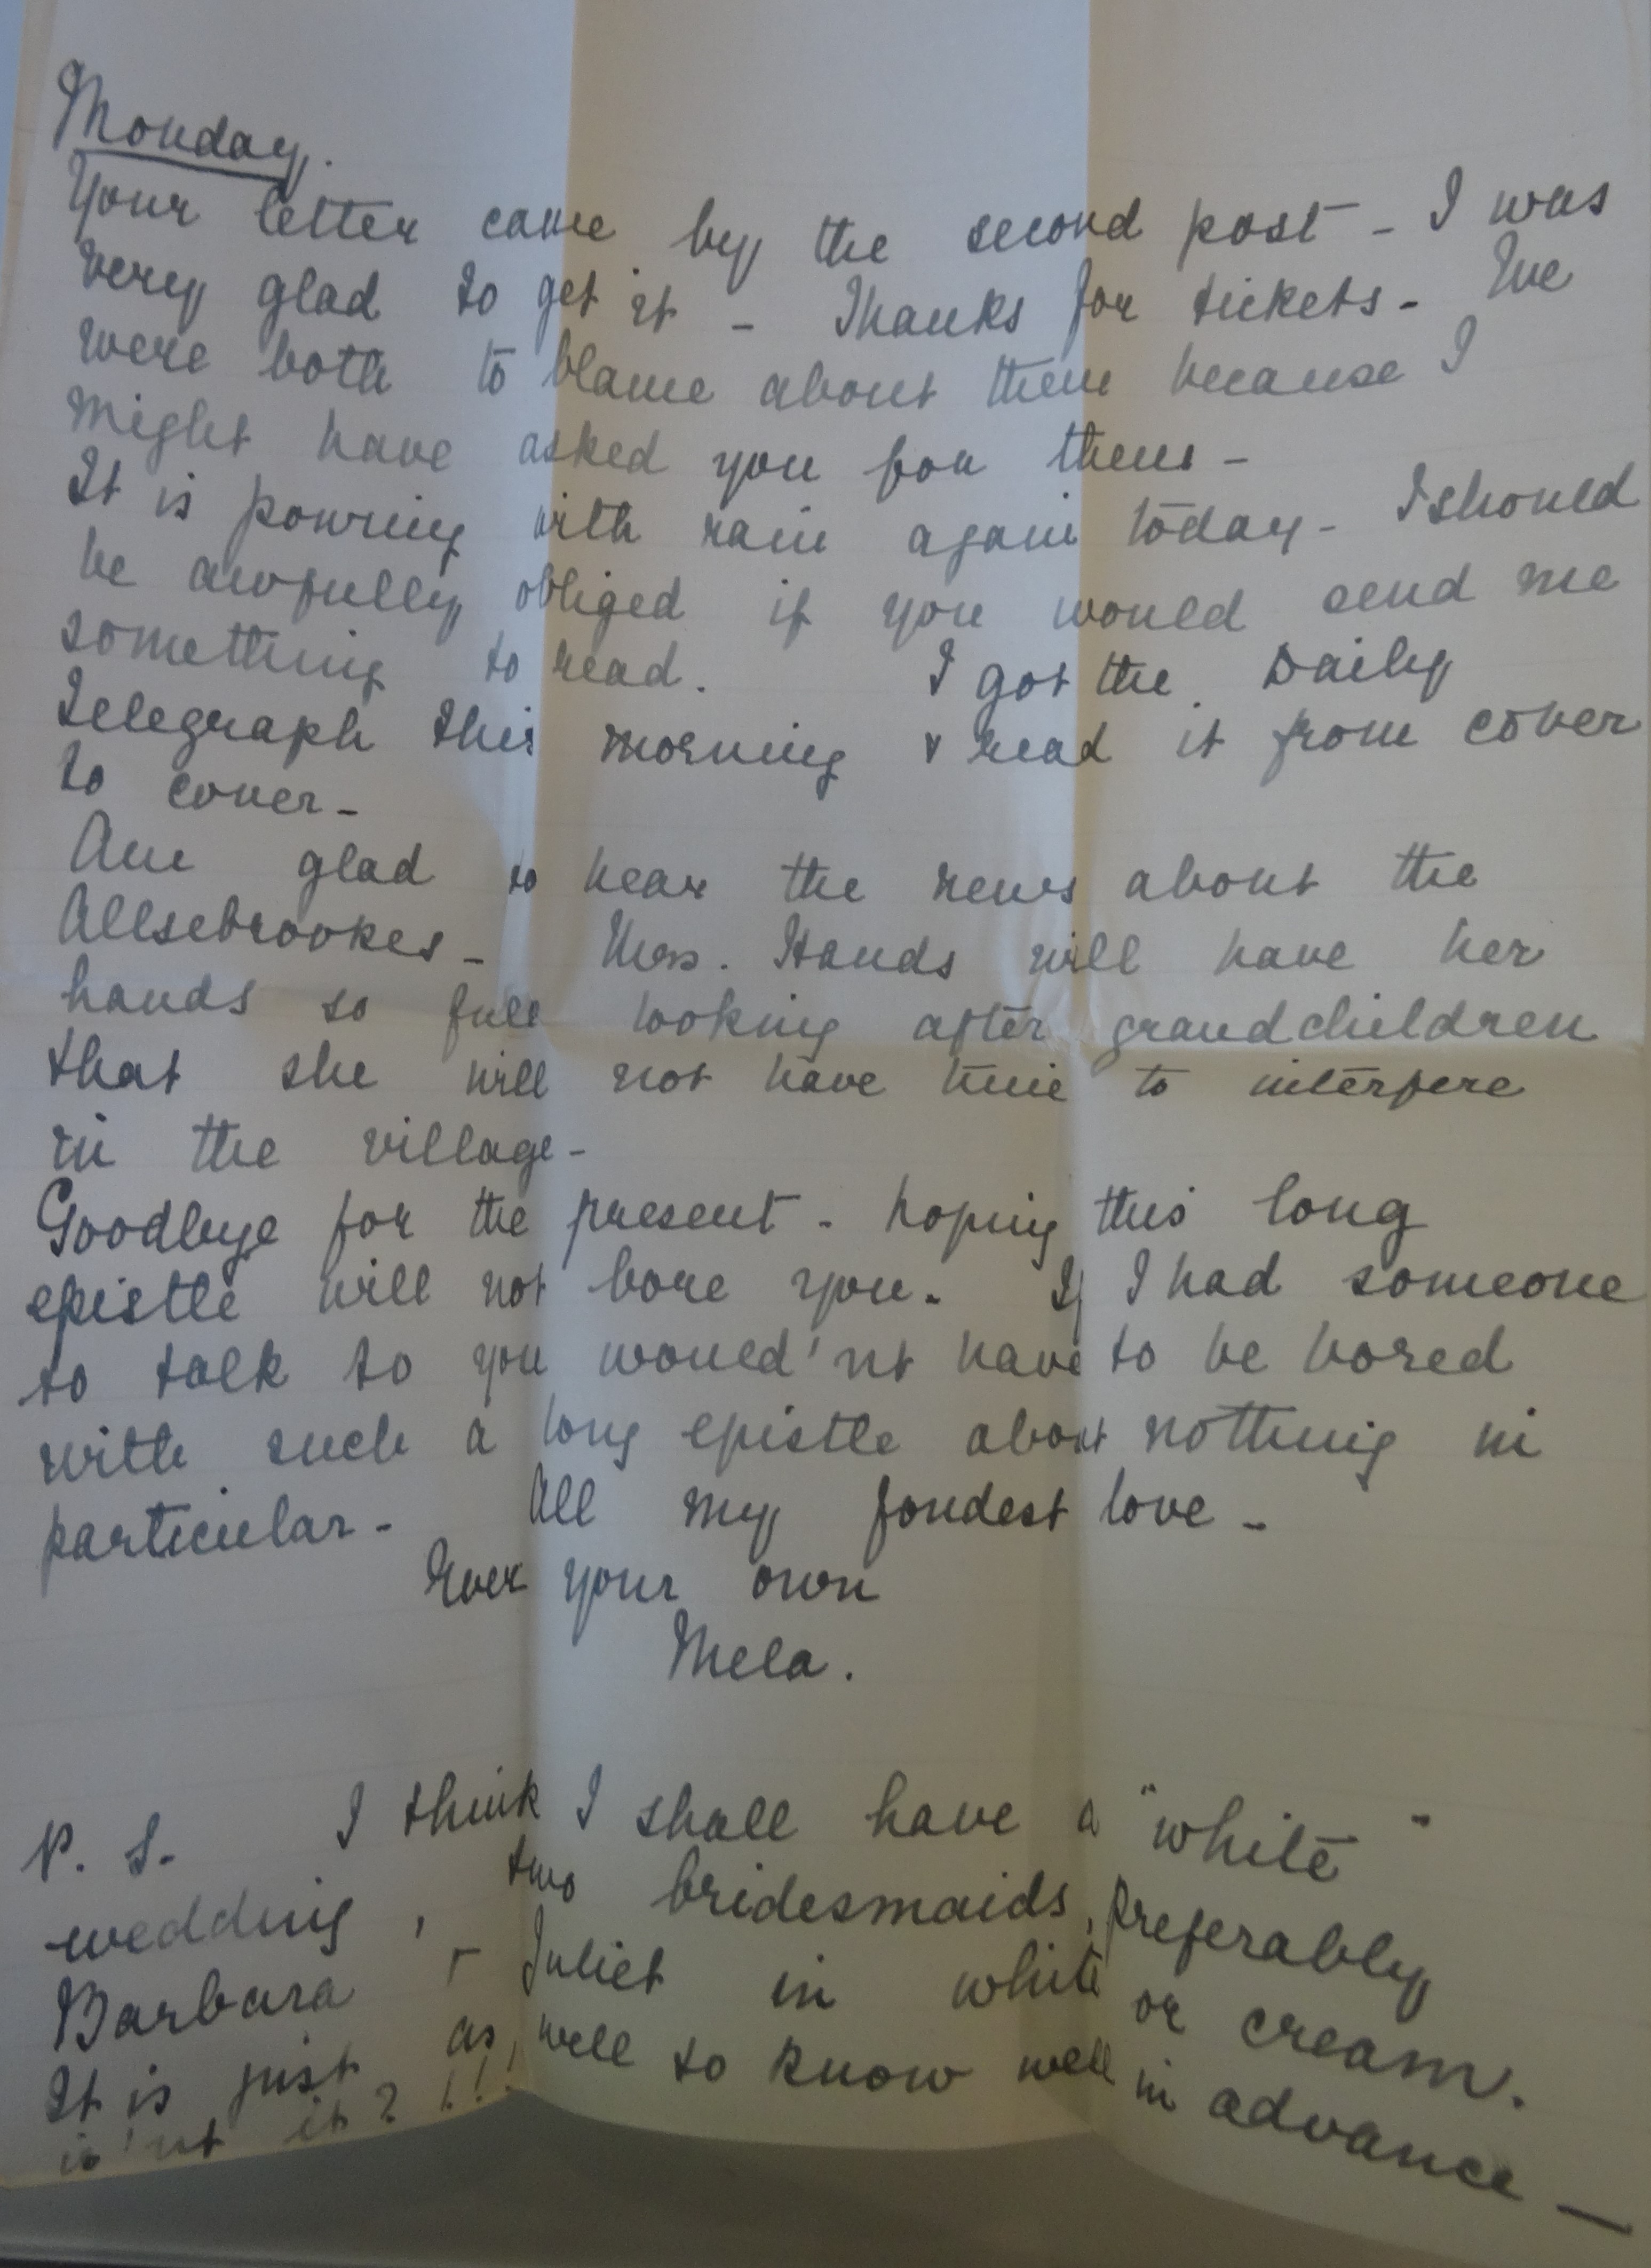 Monday.
Your letter came by the second post - I was
very glad to get it - Thanks for tickets - We
were both to blame about them because I
might have asked you for them -
It is pouring with rain again today - I should
be awfully obliged if you would send me
something to read. I got the Daily
Telegraph this morning & read it from cover
to cover -
Am glad to hear the news about the
Allsebrookes - Mrs. Hands will have her
hands so full looking after grandchildren
that she will not have time to interfere
in the village -
Goodbye for the present - hoping this long
epistle will not bore you - If I had someone
to talk to you would'nt have to be bored
with such a long epistle about nothing in
particular - All my fondest love -
Ever your own
Mela.
P. S. I think I shall have a "white"
wedding, two bridesmaids, preferably
Barbara & Juliet in white or cream.
It is just as well to know well in advance -
is'nt it? !!!